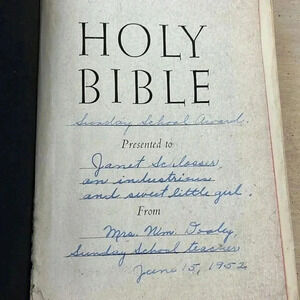 HOLY
BIBLE
Sunday School Award.
Presented to
Janet Schlosser,
an industrious
and sweet little girl.
From
Mrs. Wm. Dooley,
Sunday School teacher
June 15, 1952